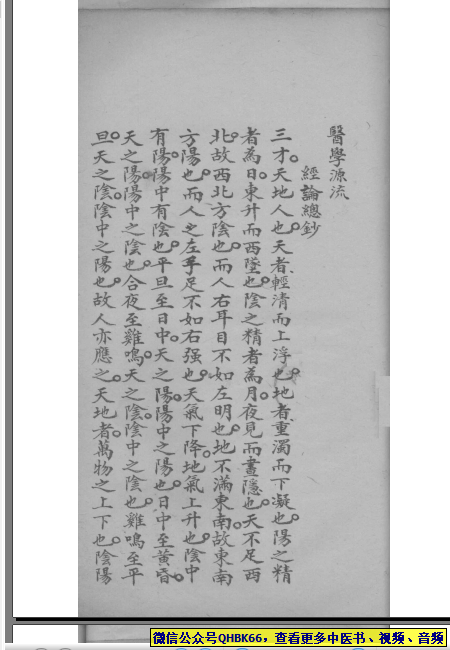 醫學源流
經論總鈔
三才。天地人也。天者、輕清而上浮也。地者、重濁而下凝也。陽之精
者為日。東升而西墜也。陰之精者為月。夜見而晝隱也。天不足西
北。故西北方陰也。而人右耳目不如左明也。地不滿東南。故東南
方陽也。而人之左手足不如右强也。天氣下降。地氣上升也。陰中
有陽。陽中有陰也。平旦至日中。天之陽。陽中之陽也。日中至黃昏。
天之陽。陽中之陰也。合夜至雞鳴。天之陰。陰中之陰也。雞鳴至平
旦。天之陰。陰中之陽也。故人亦應之。天地者。萬物之上下也。陰陽
微信公众号QHBK66，查看更多中医书、视频、音频